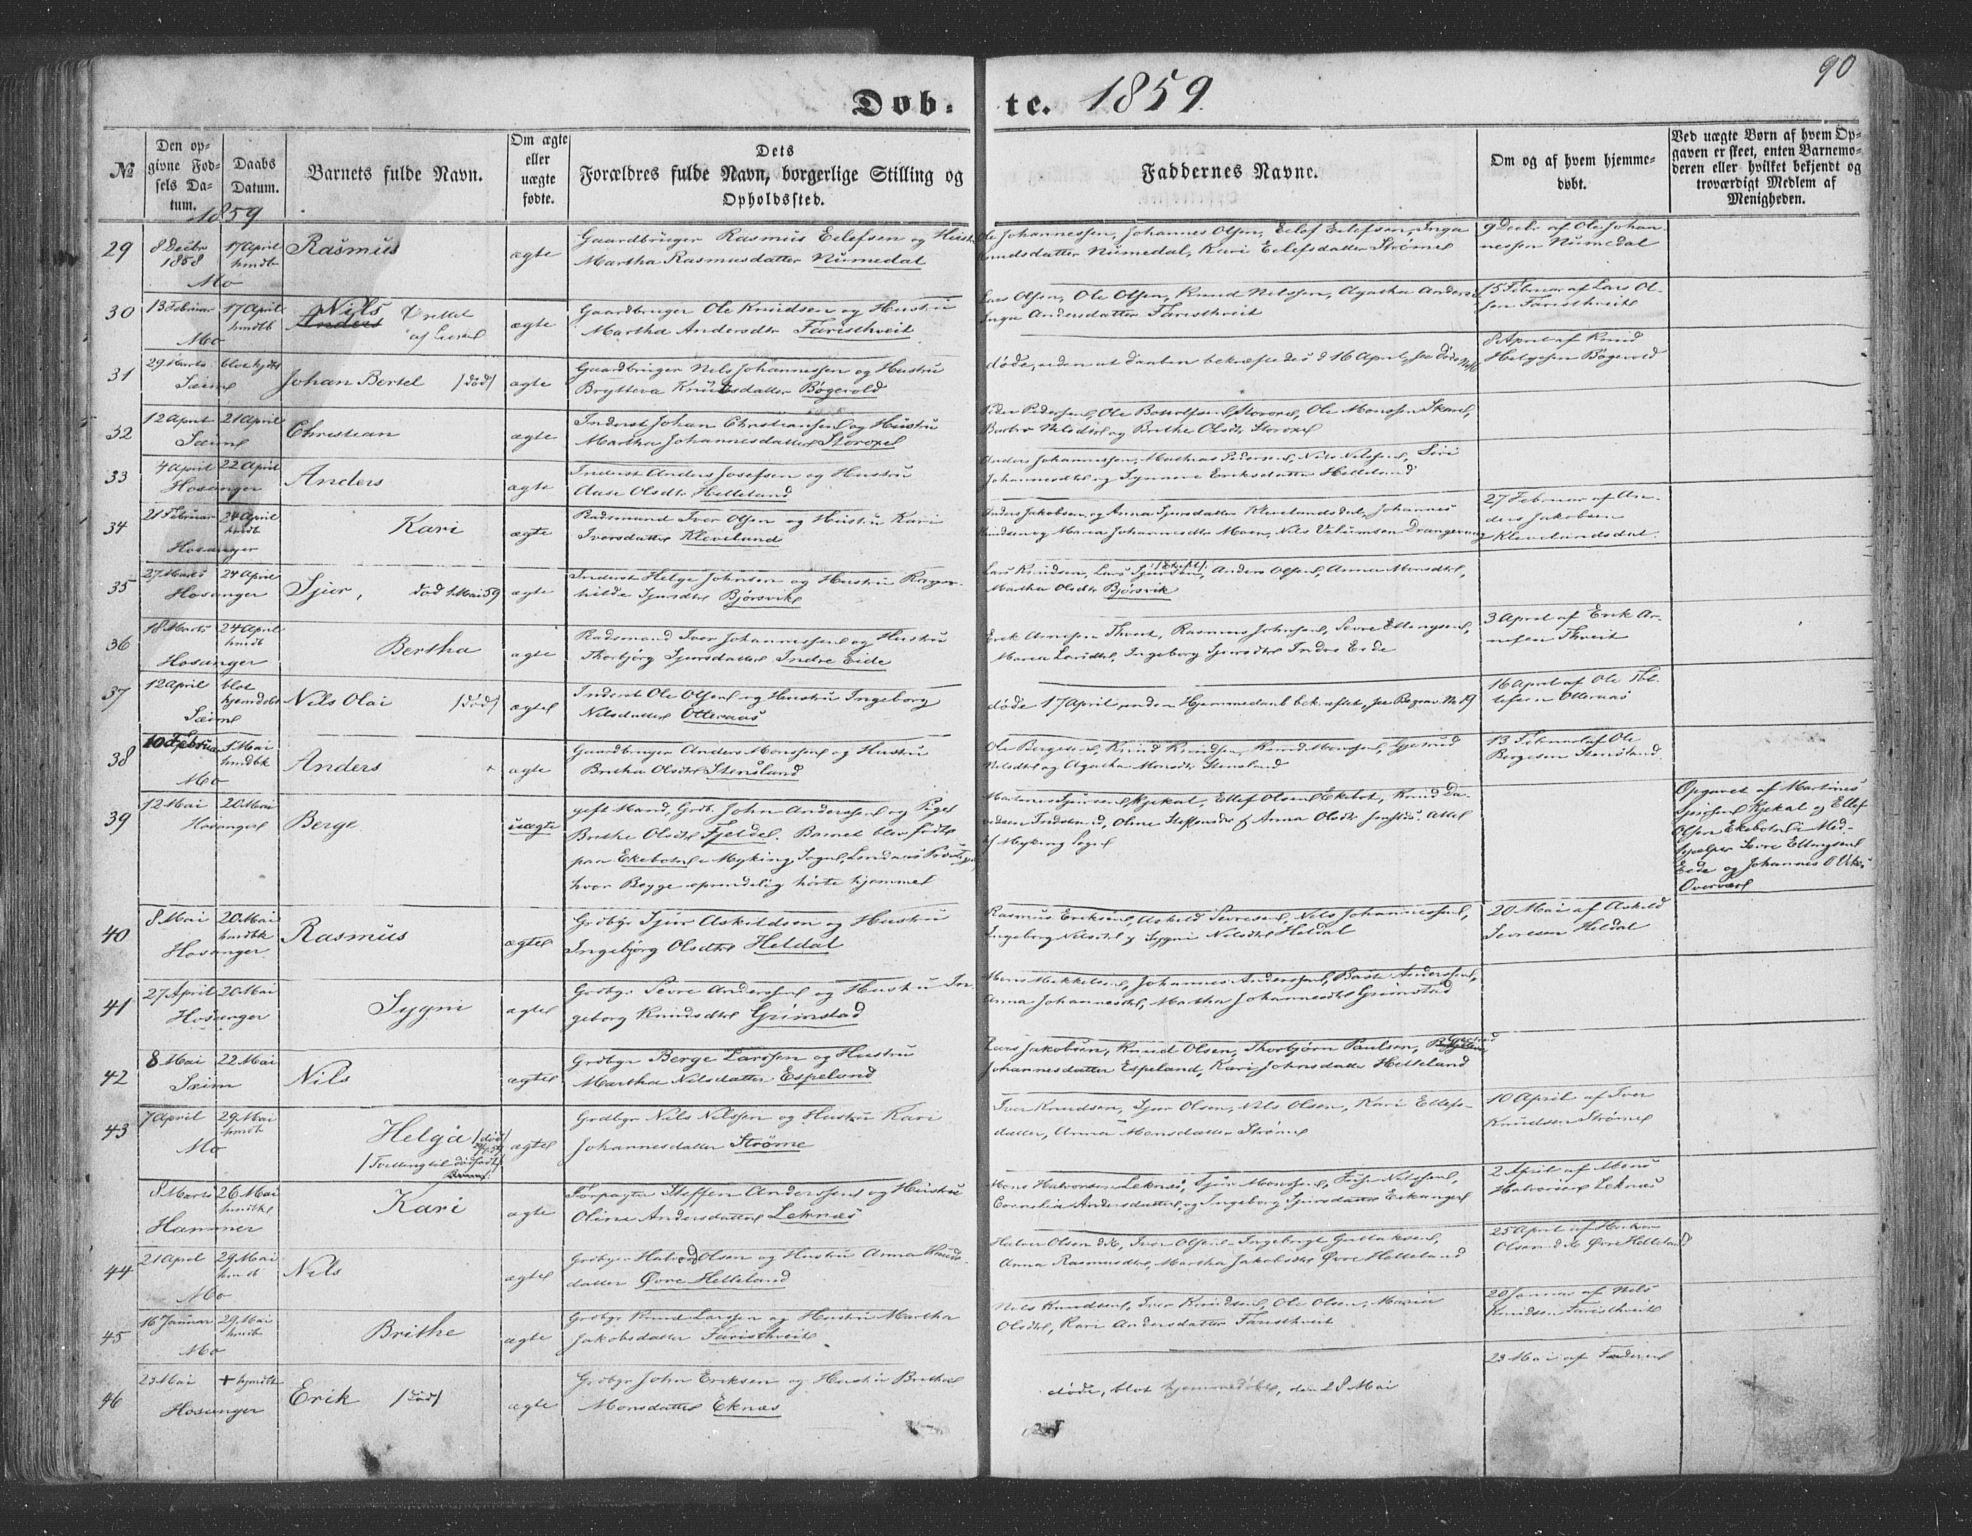 90
Døb- te. 1859.
№
Den opgivne Fødsels Datum.
Daabs Datum.
Barnets fulde Navn.
Om ægte eller uægte fødte.
Dets Forældres fulde Navn, borgerlige Stilling og Opholdssted.
Faddernes Navne.
Om og af hvem hjemmedøbt.
Ved uægte Børn af hvem Opgaven er skeet, enten Barnemoderen eller hvilket bekjendt og troværdigt Medlem af Menigheden.
1859
29 8 Decbr 1858 17 April hmdb Mo
Rasmus
ægte
Gaardbruger Rasmus Eilefsen og Hustr
Martha Rasmusdatter Numedal
Ole Johannessen, Johannes Olsen, Eilef Eilefsen, Inga
Knudsdatter Numedal, Kari Eilefsdatter Strømel
9 Decbr af Ole Johannessen Numedal
30 13 Februar 17 April hmdb Mo
Nils Anders Rettet af
ægte
Gaardbruger Ole Knudsen og Hustru
Martha Andersdtr Faristhveit
Lars Olsen, Ole Olsen, Knud Nilssen, Agatha Anders
Inga Andersdatter Faristhveit
15 Februar af Lars Olsen Faristhveit
31 29 Marts blot hjdbt Sæim
Johan Bertel /død/
ægte
Gaardbruger Nels Johannessen og Hustru
Bryttera Knudsdatter Bøgevold
døde, uden at daaben bekræftedes d 16 April, see døde
8 April af Knud Helgesen Bøgevold
32 12 April 21 April Sæim
Christian
ægte
Inderst Johan Christiansen og Hustru
Martha Johannesdatter Storoxel
Peder Pedersen, Ole Storoxel, Ole Monssen
og Brithe Olsdtr Storoxel
33 4 April 22 April Hosanger
Anders
ægte
Inderst Anders Josefsen og Hustru
Aase Olsdtr Helleland
Anders Johannessen, Mathias Pedersen, Nils Nilssen, Siri
Johannesdtr og Synneve Eriksdatter Helleland
34 21 Februar 24 April hmdb Hosanger
Kari
ægte
Radsmand Iver Olsen og Hustru Kari
Iversdatter Kleveland
Anders Jakobsen, og Anna Sjursdatter Klevelandsdal, Johannes
Knudsen og Maria Johannesdtr Moen, Nils
27 Februar af Anders Jakobsen Klevelandsdal.
35 27 Marts 24 April Hosanger
Sjur, død 1 Mai 59
ægte
Inderst Helge Johnsen og Hustru Ragnhilde Sjursdtr Bjørsvik
Lars Knudsen, Lars Sjursen, Anders Olsen, Anna Monsdtr,
Martha Olsdtr Bjørsvik
36 18 Marts 24 April hmdb Hosanger
Bertha
ægte
Radsmand Iver Johannessen og Hustru
Thorbjørg Sjursdatter Indre Eide
Erik Arnesen Thveit, Rasmus Johnsen, Sevre Ellingsen,
Maria Larsdtr, Ingeborg Sjursdtr Indre Eide
3 April af Erik Arnesen Thveit
37 12 April blot hjemdøbt Sæim
Nils Olai /død/
ægte
Inderst Ole Olsen og Hustru Ingeborg
Nilsdatter Otteraas
døde 17 April, uden Hjemmedaab bekræftet, see Begrav. No 19
16 April af Ole Otteraas
38 10 Februar 1 Mai hmdbt Mo
Anders
ægte
Gaardbruger Anders Monssen og Hustru
Britha Olsdtr Stensland
Ole Bergesen, Knud Knudsen, Knud Monssen, Gjertrud
Nilsdtr og Agatha Monsdtr Stensland
13 Februar af Ole Bergesen Stensland
39 12 Mai 20 Mai Hosanger
Berge
uægte
gift Mand, Grdb. John Anderssen og Pige
Brithe Olsdtr Fjeldel. Barnet blev født
paa Ekeboten i Myking Sogn, Lindaas
hvor Begge oprendelig hørte hjemme
Martines Sjursen Kjekal, Ellef Olsen Ekebot, Knud
Oline Steffensdtr & Anna Olsdtr
af Myking Sogn
Opgavet af Martines
Sjursen Kjekal og Ellef
Olsen Ekeboten i Medhjælper Sevre Ellingsen
Eide og Johannes
Overvær
40 8 Mai 20 Mai hmdbt Hosanger
Rasmus
ægte
Grdbgr Sjur Askildsen og Hustru
Ingebjørg Olsdtr Heldal
Rasmus Eriksen, Askild Sevresen, Nils Johannessen,
Ingeborg Nilsdtr & Sygni Nilsdtr Heldal
20 Mai af Askild Sevresen Heldal
41 27 April 20 Mai Hosanger
Sygni
ægte
Grdbgr Sevre Anderssen og Hustru Ingeborg Knudsdtr Grimstad
Mons Mikkelsen, Johannes Anderssen, Baste Anderssen,
Anna Johannesdtr, Martha Johannesdtr Grimstad
42 8 Mai 22 Mai Sæim
Nils
ægte
Grdbgr Berge Larssen og Hustru
Martha Nilsdatter Espeland
Lars Jakobsen, Knud Olsen, Thorbjørn Paulsen,
Johannesdatter Espeland, Kari Johnsdatter Helleland
43 7 April 29 Mai hmdb Mo
Helga /død/
/Tvilling til dødfødt
ægte
Grdbgr Nils Nilssen og Hustru Kari
Johannesdatter Strøme
Iver Knudsen, Sjur Olsen, Nils Olsen, Kari Ellefsdatter, Anna Monsdatter Strøme
10 April af Iver Knudsen Strøme
8 Marts 26 Mai hmdbt Hammer
Kari
ægte
Forpagter Steffen Anderssen og Hustru
Olina Andersdatter Leknæs
Mons Halvorsen Leknæs, Sjur Monssen, Nilssen,
Cornelia Andersdatter, og Ingeborg Sjursdatter Eikanger
2 April af Mons Halvorsen Leknæs
44 21 April 29 Mai hmdb Mo
Nils
ægte
Grdbgr Halvor Olsen og Hustru Anna Knudsdatter Øvre Helleland
Halvor Olsen Iver Olsen, Ingebrigt Gullaksen,
Anna Rasmusdtr, Martha Jakobsdtr Øvre Helleland
25 April af Olsen Øvre Helleland
45 16 Januar 29 Mai hmdb Mo
Brithe
ægte
Grdbgr Knud Larsen og Hustru Martha
Jakobsdatter Faristhveit
Nils Knudsen, Iver Knudsen, Ole Olsen, Maria
Olsdtr, Kari Andersdatter Faristhveit
20 Januar af Nils Knudsen Faristhveit
46 23 Mai + hjmdbt Hosanger
Erik /død/
ægte
Grdbgr John Eriksen og Hustru Brithe
Monsdatter Eknæs
døde, blot hjemmedøbt, den 28 Mai
23 Mai af Faderen